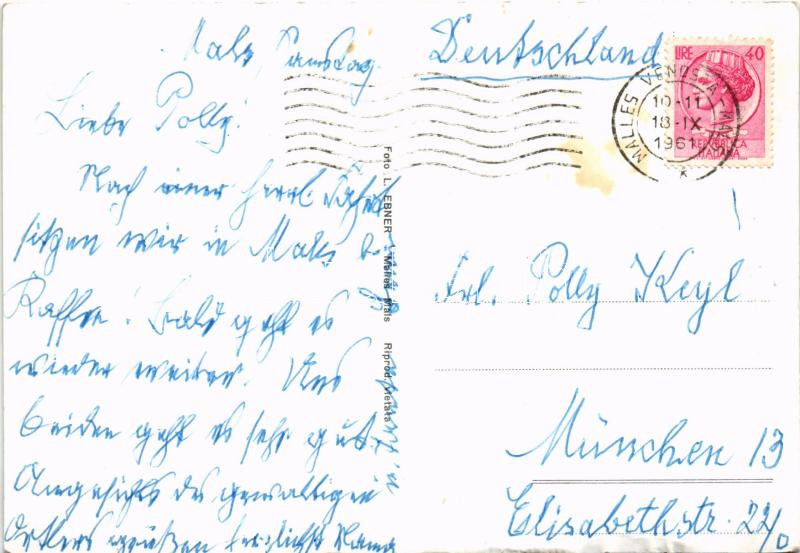 Mals, Samstag.
Liebe Polly!
Nach einer herrl. Fahrt
sitzen wir in Mals b.
Kaffee! Bald geht es
wieder weiter. Uns
beiden geht es sehr gut.
Angesichts des gewaltigen
Ortlers grüßen herzlichst Mama
Foto L. EBNER - Malles-Mals Riprod. Vietata
Deutschland
LIRE 40
REPUBBLICA
ITALIANA
MALLES VENOSTA - MALS
10-11
18-IX
1961
Frl. Polly Keyl
München 13
Elisabethstr. 22/0